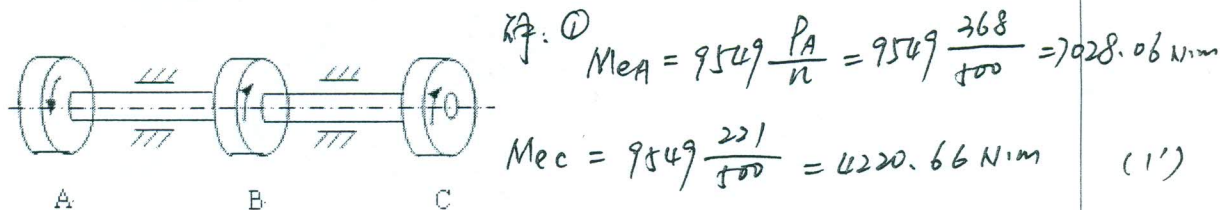 解：① MeA = 9549 P_A/n = 9549 368/500 = 7028.06 N·m
Mec = 9549 221/500 = 4220.66 N·m (1')
A B C